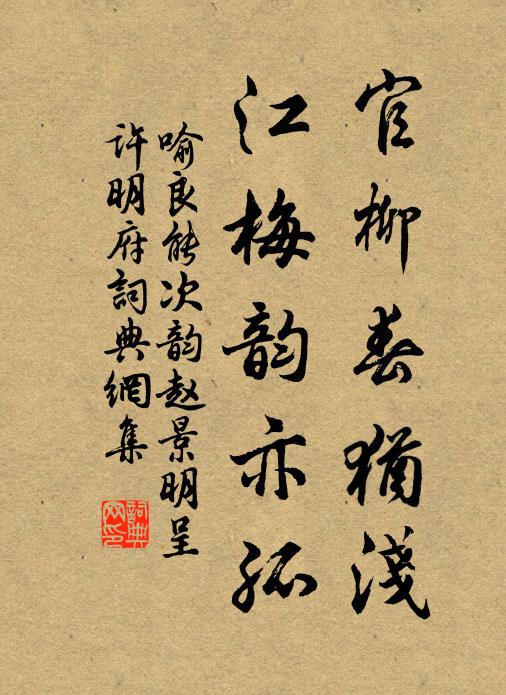 官柳春猶淺
江梅韵亦孤
喻良能次韵赵景明呈
許明府詞典網集
詞典
网印